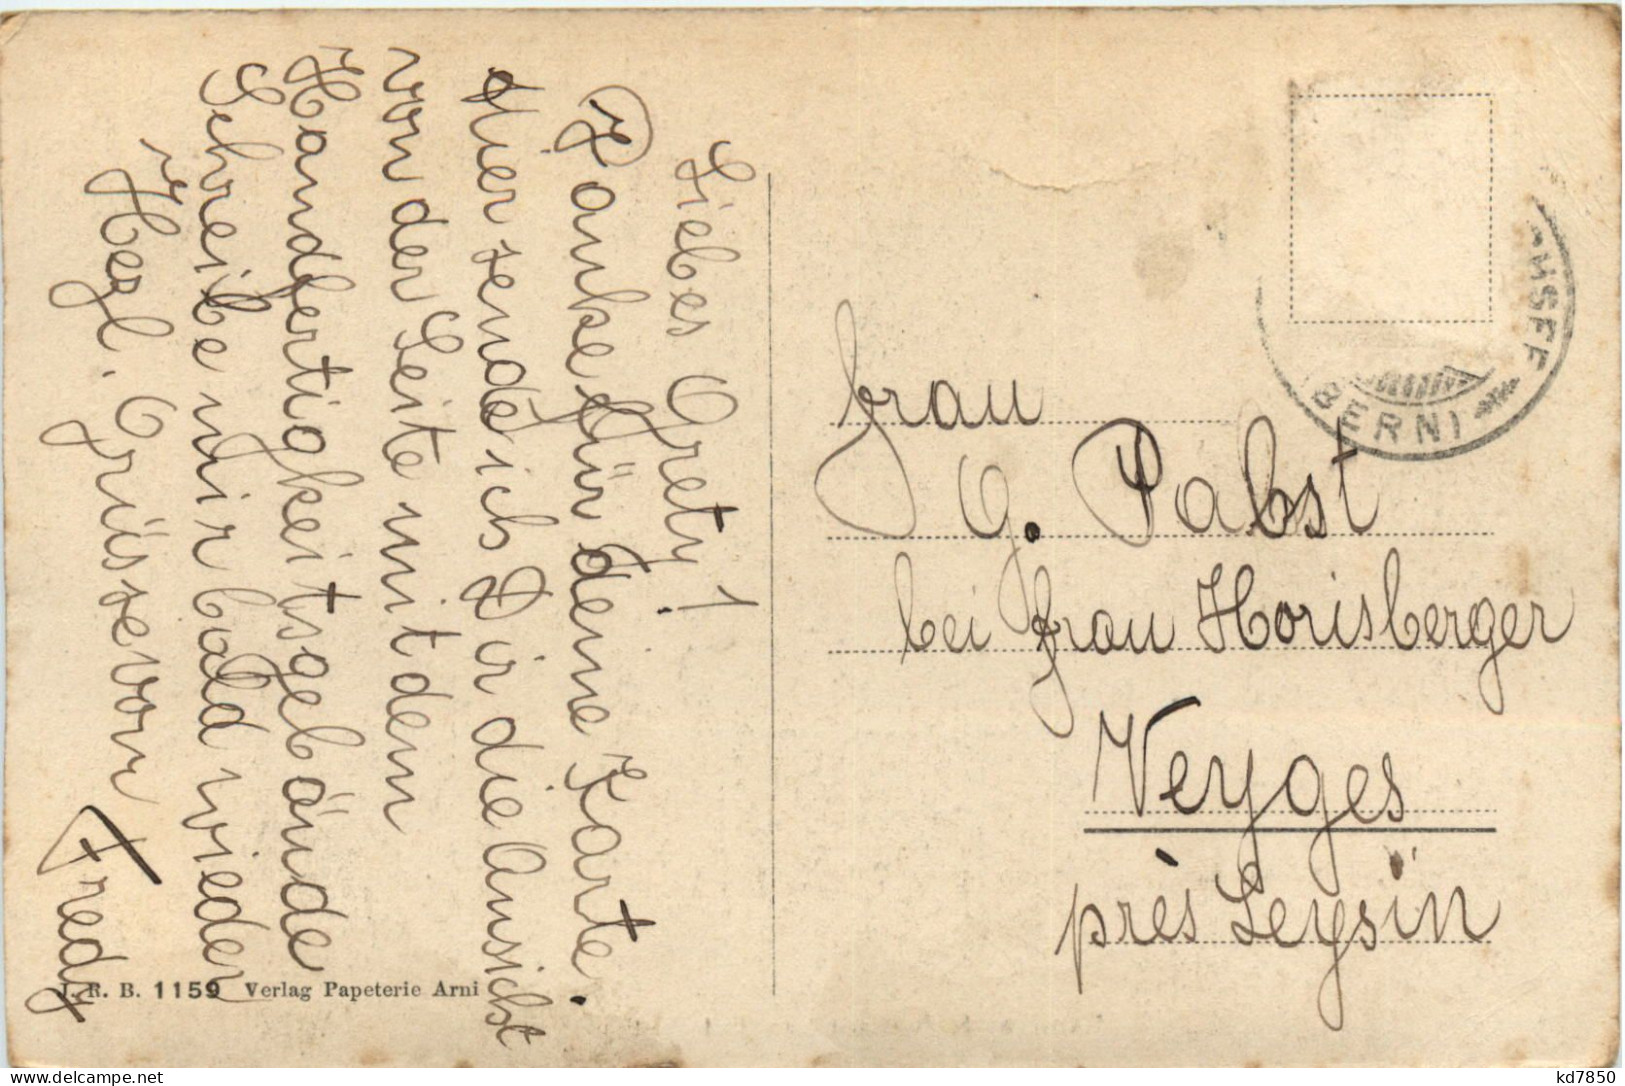 Liebes Grety!
Danke für deine Karte.
Hier sende ich Dir die Ansicht
von der Seite mit dem
Handfertigkeitsgebäude
Schreibe mir bald wieder
Herzl. Grüsse von
Fredy
J. R. B. 1159 Verlag Papeterie Arni
BERN I
Frau
G. Pabst
bei Frau Horisberger
Veyges
près Leysin
kd7850